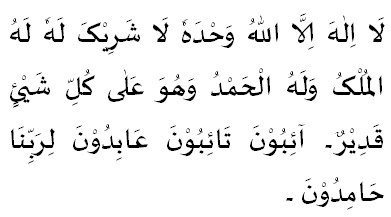 لَا اِلٰهَ اِلَّا اللهُ وَحْدَهٗ لَا شَرِيْکَ لَهٗ لَهُ
الْمُلْکُ وَلَهُ الْحَمْدُ وَهُوَ عَلٰى كُلِّ شَيْئٍ
قَدِيْرٌ۔ آئِبُوْنَ تَائِبُوْنَ عَابِدُوْنَ لِرَبِّنَا
حَامِدُوْنَ ۔